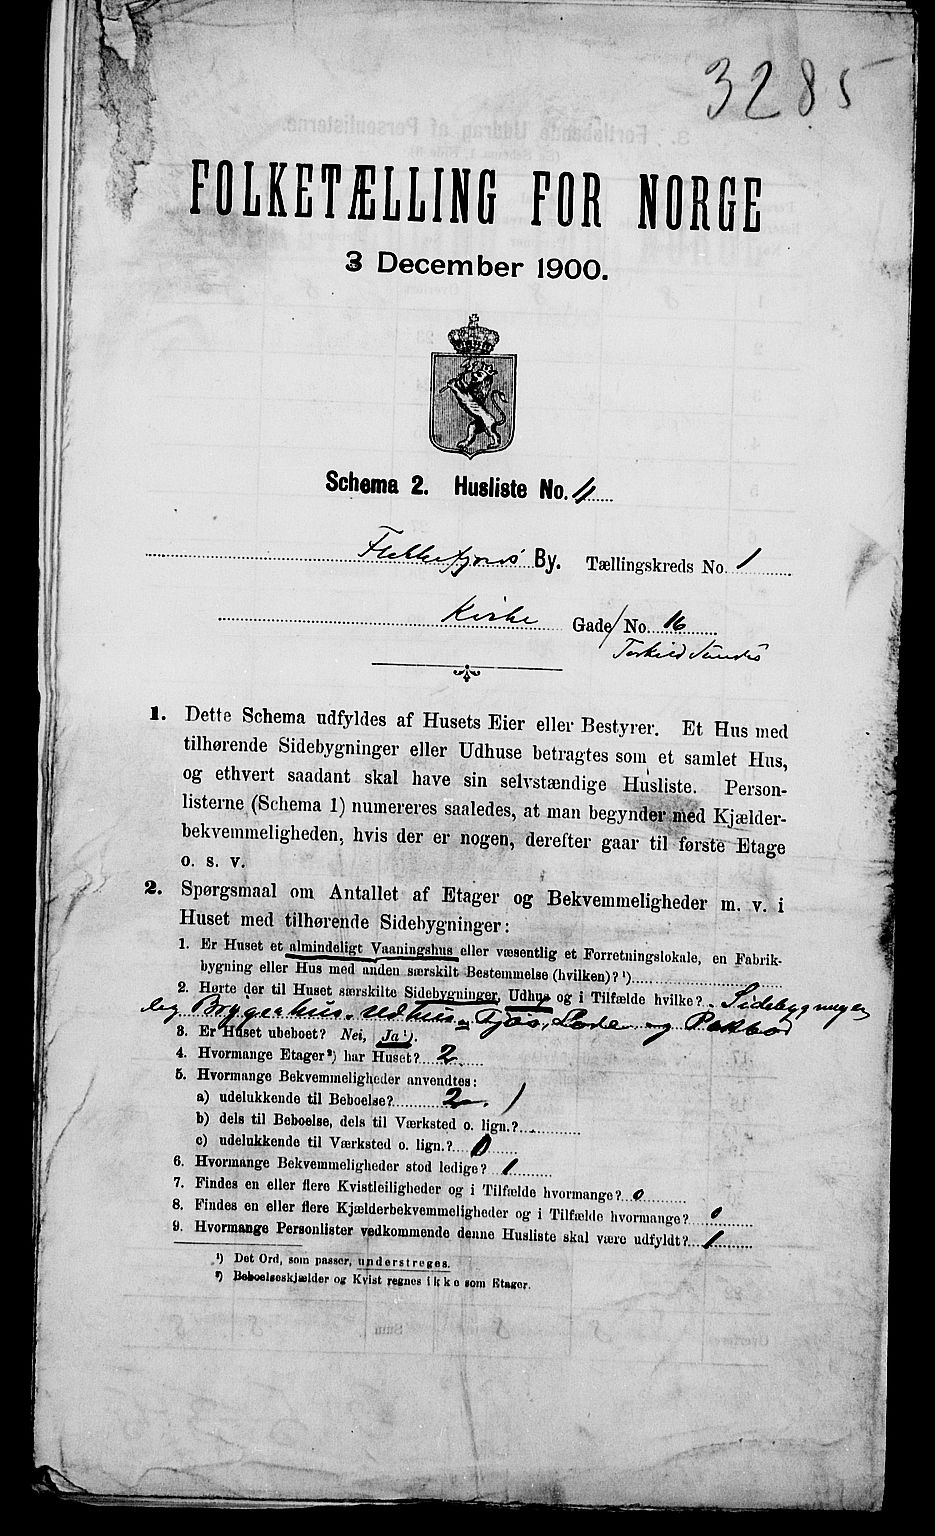 3285
FOLKETÆLLING FOR NORGE
3 December 1900.
Schema 2. Husliste No. 11
Flekkefjords By. Tællingskreds No. 1
Kirke Gade/No. 16
Torkild
1. Dette Schema udfyldes af Husets Eier eller Bestyrer. Et Hus med
tilhørende Sidebygninger eller Udhuse betragtes som et samlet Hus,
og ethvert saadant skal have sin selvstændige Husliste. Person-
listerne (Schema 1) numereres saaledes, at man begynder med Kjælder-
bekvemmeligheden, hvis der er nogen, derefter gaar til første Etage
o. s. v.
2. Spørgsmaal om Antallet af Etager og Bekvemmeligheder m. v. i
Huset med tilhørende Sidebygninger:
1. Er Huset et almindeligt Vaaningshus eller væsentlig et Forretningslokale, en Fabrik-
bygning eller Hus med anden særskilt Bestemmelse (hvilken)? ¹)
2. Hørte der til Huset særskilte Sidebygninger, Udhus og i Tilfælde hvilke? Sidebygningen
Bryggerhus. Udhus og Pakbod
3. Er Huset ubeboet? Nei, Ja ¹).
4. Hvormange Etager²) har Huset? 2
5. Hvormange Bekvemmeligheder anvendtes:
a) udelukkende til Beboelse? 2. )
b) dels til Beboelse, dels til Værksted o. lign.?
c) udelukkende til Værksted o. lign.? 0
6. Hvormange Bekvemmeligheder stod ledige? 1
7. Findes en eller flere Kvistleiligheder og i Tilfælde hvormange? 0
8. Findes en eller flere Kjælderbekvemmeligheder og i Tilfælde hvormange? 0
9. Hvormange Personlister vedkommende denne Husliste skal være udfyldt? 1
¹) Det Ord, som passer, understreges.
²) Beboelseskjælder og Kvist regnes ikke som Etager.